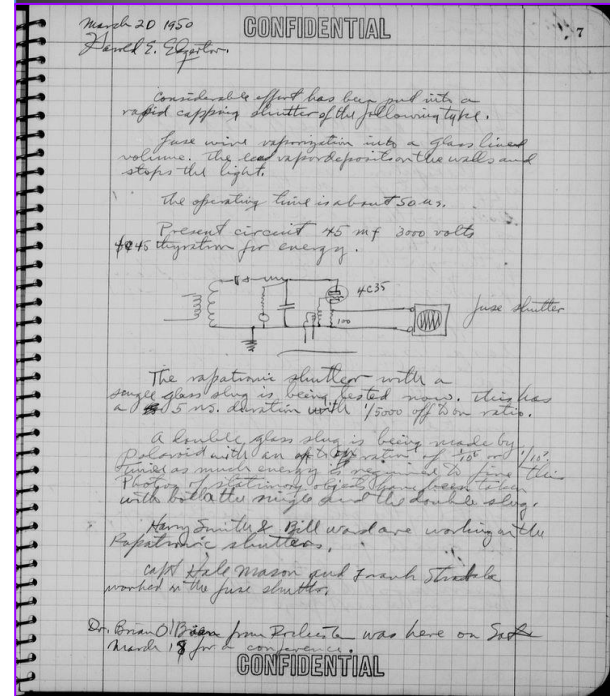 March 20 1950
CONFIDENTIAL
7
Harold E. Edgerton
Considerable effort has been put into a
rapid capping shutter of the following type.
Fuse wire vaporization into a glass lined
volume. The lead vapor deposits on the walls and
stops the light.
The operating time is about 50 us.
Present circuit 45 mf 3000 volts
thyratron for energy.
4C35
100
fuse shutter
The rapatronic shutter with a
single glass slug is being tested now. This has
a 5 ms. duration with 1/5000 off to on ratio.
A double glass slug is being made by
Polaroid with an ratio of 1/10⁶ or
times as much energy is required to fire this
Photos of stationary objects have been taken
with both the single and the double slug.
Harry Smith & Bill Ward are working on the
Rapatronic shutters.
Capt Hale Mason and Frank
worked on the fuse shutter.
Dr. Brian O'Brien from Rochester was here on Sat
March 18 for a conference.
CONFIDENTIAL